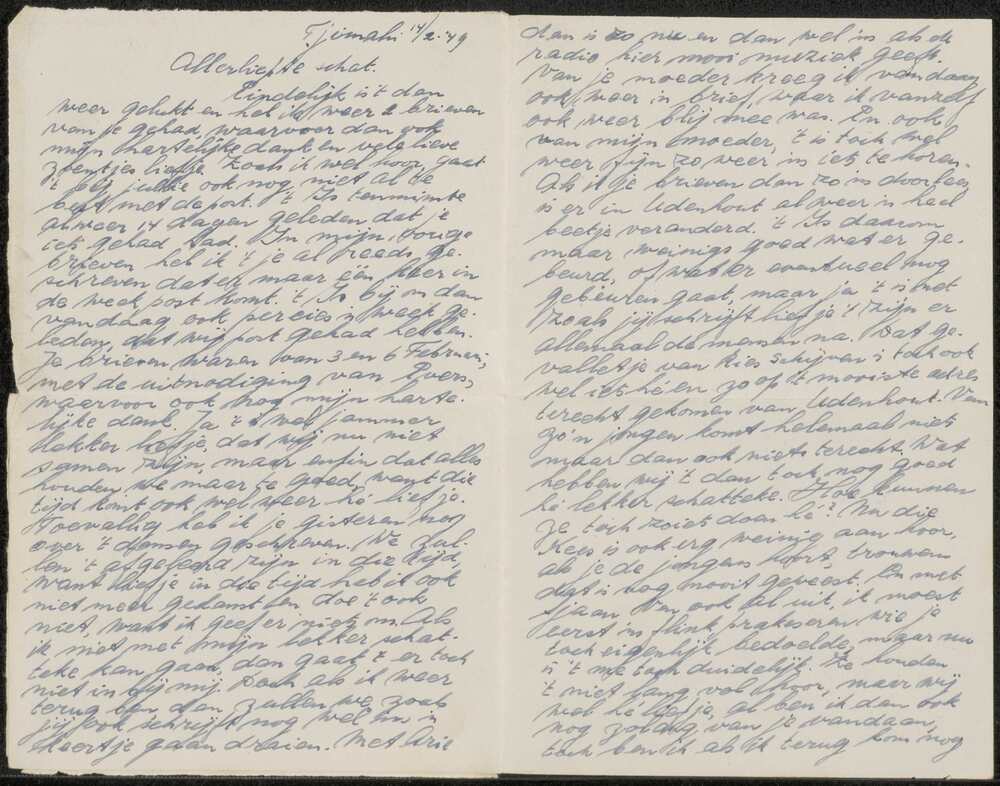 Tjimahi 14/2-'49
Allerliefste schat.
Eindelijk is 't dan
weer gelukt en heb ik weer 2 brieven
van je gehad, waarvoor dan ook
mijn hartelijke dank en vele lieve
zoentjes liefje. Zoals ik wel hoor, gaat
't bij jullie ook nog niet al te
best met de post. 't Is tenminste
alweer 14 dagen geleden dat je
iets gehad had. In mijn vorige
brieven heb ik 't je al reeds ge-
schreven dat er maar één keer in
de week post komt. 't Is bij ons dan
vandaag ook precies 'n week ge-
leden, dat wij post gehad hebben.
Je brieven waren van 3 en 6 Februari,
met de uitnodiging van
waarvoor ook nog mijn harte-
lijke dank. Ja 't is wel jammer
lekker liefje, dat wij nu niet
samen zijn, maar enfin dat alles
houden we maar te goed, want die
tijd komt ook wel weer hé liefje.
Toevallig heb ik je gisteren nog
over 't dansen geschreven. We zul-
len 't afgeleerd zijn in die tijd,
want liefje in die tijd heb ik ook
niet meer gedanst en doe 't ook
niet, want ik geef er niets om. Als
ik niet met mijn lekker schat-
teke kan gaan, dan gaat 't er toch
niet in bij mij. Doch als ik weer
terug ben dan zullen we zoals
jij ook schrijft nog wel ons 'n
keertje gaan draaien. Met Arie
dan is zo nu en dan wel ins als de
radio hier mooi muziek geeft.
Van je moeder kreeg ik vandaag
ook weer 'n brief, waar ik vanzelf
ook weer blij mee was. En ook
van mijn moeder, 't is toch wel
weer fijn zo weer ins iets te horen.
Als ik je brieven dan zo ins doorlees
is er in Udenhout alweer 'n heel
beetje veranderd. 't Is daarom
maar weinigs goed wat er ge-
beurd, of wat er eventueel nog
gebeuren gaat, maar ja 't is net
zoals jij schrijft liefje 't zijn er
allemaal de mensen na. Dat ge-
valletje van Kies Schijvens is toch ook
wel iets hé en zo op 't mooiste adres
terecht gekomen van Udenhout. Van
zo'n jongen komt helemaal niets
maar dan ook niets terecht. Wat
hebben wij 't dan toch nog goed
hé lekker schatteke. Hoe kunnen
ze toch zoiets doen hé? Nu die
Kees is ook erg weinig aan hoor,
als je de jongens hoort, trouwens
dat is nog nooit geweest. En met
Sjaan V. ook al uit, ik moest
eerst ins flink prakeseren wie je
toch eigenlijk bedoelde, maar nu
is 't me toch duidelijk. Ze houden
't niet lang vol hoor, maar wij
wel hé liefje, al ben ik dan ook
nog zo lang van je vandaan,
toch ben ik als ik terug kom nog